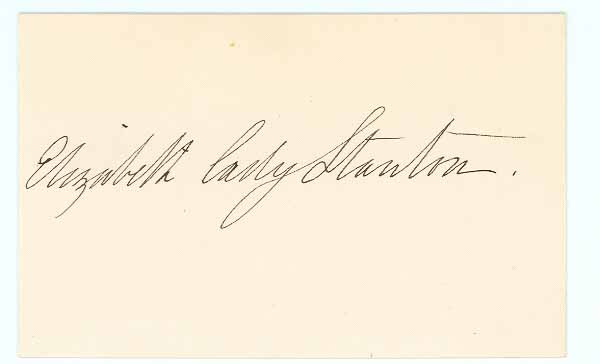 Elizabeth Cady Stanton.